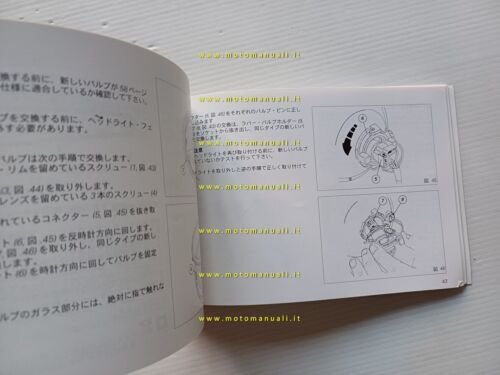 換する前に、新しいバルブが58ページ
仕様に適合しているか確認して下さい。
ブを交換する前に、ヘッドライト・フェ
外す必要があります。
バルブは次の手順で交換します。
・リムを留めているスクリュー (1, 図.43)
(3, 図.44) を取り外します。
レンズを留めている 3本のスクリュー (4)
れているコネクター (5, 図.45) を抜き取
ト (6) を反時計方向に回します。
(7, 図.46) を取り外し、同じタイプの新し
ト (6) を時計方向に回してバルブを固定
ルブのガラス部分には、絶対に指で触れな
クター (5, 図.45) をそれぞれのバルブ・ピンに正し
込みます
の交換は、ラバー・バルブホルダー (8
ソケットから抜き出し、同じタイプの新しいバ
交換します。
注意
ヘッドライトを再び取り付ける前に、新しいバルブ
ていないかテストを行って下さい。
ドライトを取り外しと逆の手順で正しく取り付けて
6
5
図 45
7
8
図 46
43
www.motomanuali.it
www.motomanuali.it
www.motomanuali.it
www.motomanuali.it
www.motomanuali.it
www.motomanuali.it
www.motomanuali.it